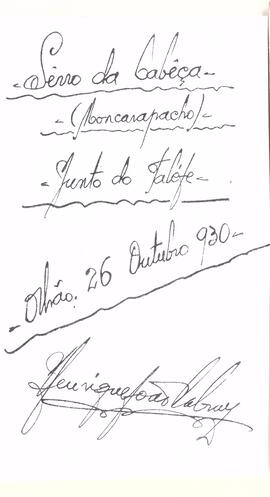 - Sêrro da Cabêça -
- (Moncarapacho) -
- Junto do Talefe -
- Olhão. 26 Outubro 930 -
Henrique João